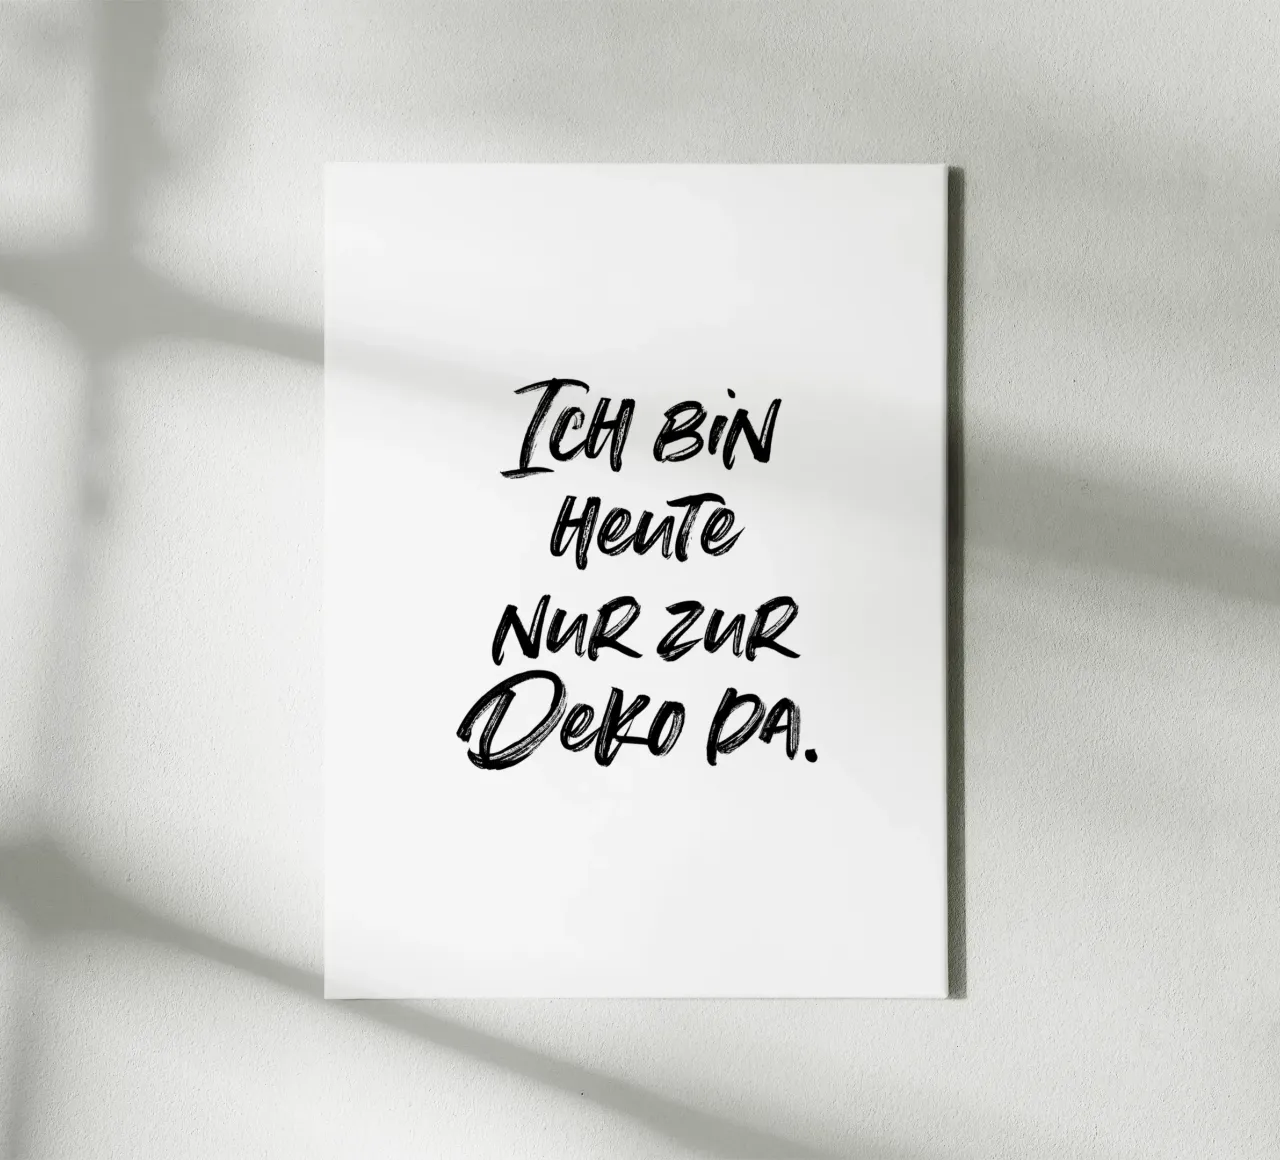 Ich bin
heute
nur zur
Deko da.